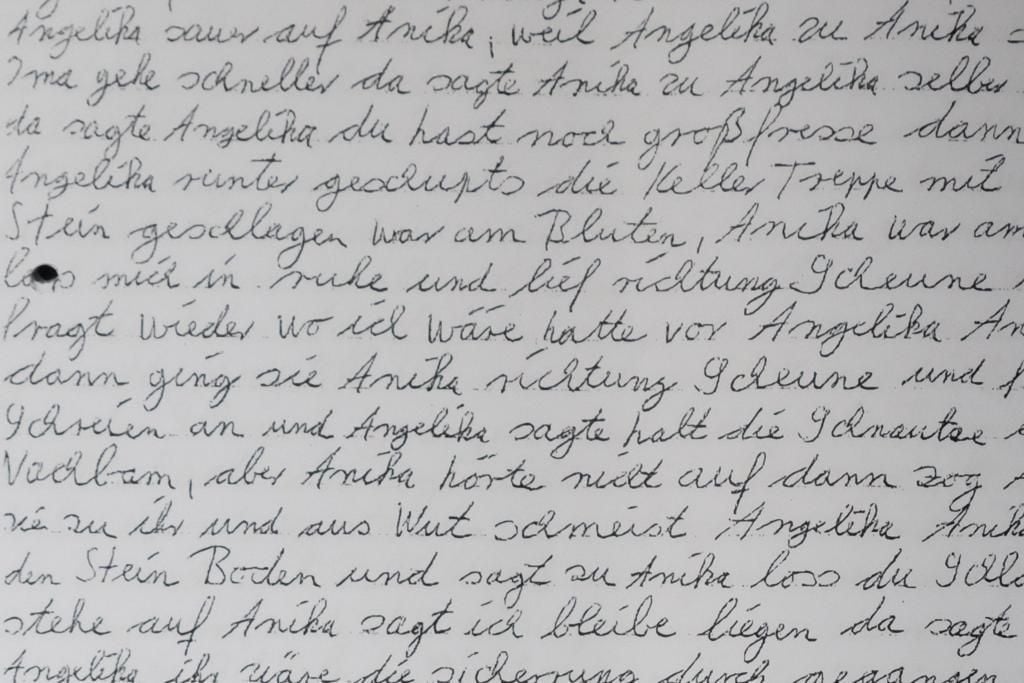 Angelika sauer auf Anika, weil Angelika zu Anika
Ima gehe schneller da sagte Anika zu Angelika selber
da sagte Angelika du hast noch groß fresse dann
Angelika runter geschupts die Keller Treppe mit
Stein geschlagen war am Bluten, Anika war am
lass mich in ruhe und lief richtung Scheune
fragt wieder wo ich wäre hatte vor Angelika An
dann ging sie Anika richtung Scheune und f
Schreien an und Angelika sagte halt die Schnautze
Nachbarn, aber Anika hörte nicht auf dann zog
sie zu ihr und aus Wut schmeist Angelika Anika
den Stein Boden und sagt zu Anika loss du Schla
stehe auf Anika sagt ich bleibe liegen da sagte
Angelika ihr wäre die sicherrung durch gegangen